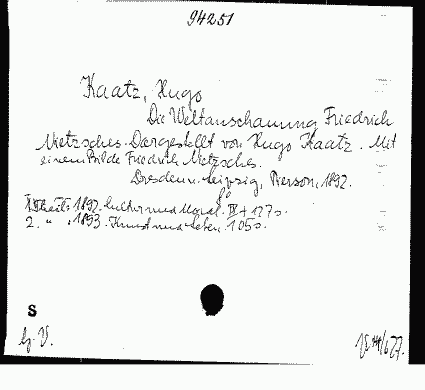 94251
Kaatz, Hugo
Die Weltanschauung Friedrich
Nietzsches. Dargestellt von Hugo Kaatz. Mit
einem Bilde Friedrich Nietzsches.
Dresden u. Leipzig, Pierson, 1892.
8°
1. Theil: 1892. Cultur und Moral. IV + 127 S.
2. " : 1893. Kunst und Leben. 105 S.
S